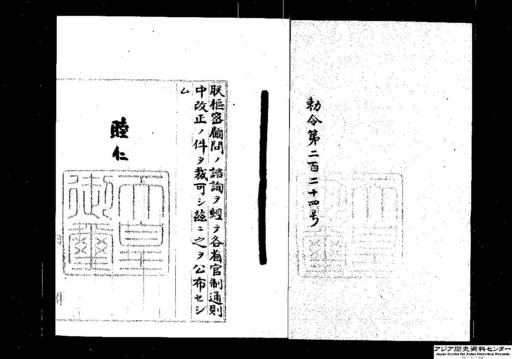 勅令第二百二十四号
朕樞密顧問ノ諮詢ヲ經テ各省官制通則
中改正ノ件ヲ裁可シ茲ニ之ヲ公布セシ
ム
睦仁
天皇
御璽
アジア歴史資料センター
Japan Center for Asian Historical Records